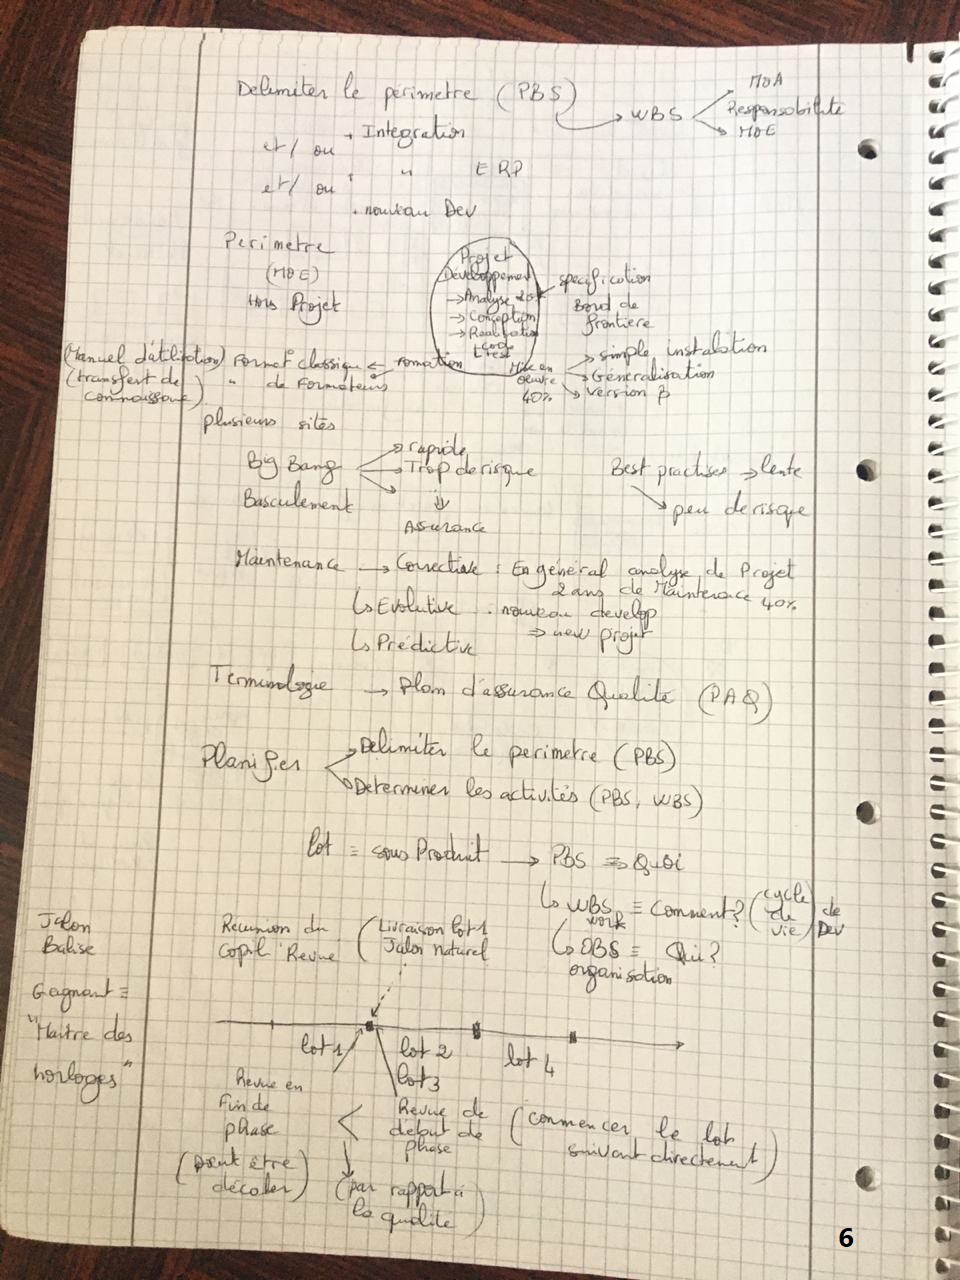 Délimiter le périmètre (PBS) → WBS
MOA
Responsabilité
MOE
+ Integration
et/ ou
" ERP
et/ ou
. nouveau Dev
Perimetre
(MOE)
Hors Projet
Projet
Développement
→ Analyse
→ Conception
→ Realisation
code
test
specification
Bord de
frontière
Mise en
oeuvre
40%
→ simple instalation
→ Généralisation
→ Version β
formation
Format° classique
" de Formateurs
(Manuel d'utilisation)
(transfert de
connaissance)
plusieurs sites
Big Bang
→ rapide
→ Trop de risque
Basculement
⇓
Assurance
Best practises → lente
→ peu de risque
Maintenance → Corrective : En général analyse de Projet
2 ans de Maintenace 40%
↳ Evolutive . nouveau develop
⇒ new projet
↳ Prédictive
Terminologie → Plan d'assurance Qualité (PAQ)
Planifier
Délimiter le perimetre (PBS)
Déterminer les activités (PBS, WBS)
lot ≡ sous Produit → PBS ⇒ Quoi
↳ WBS ≡ Comment? (cycle de vie) de Dev
work
↳ OBS ≡ Qui?
organisation
Jalon
Balise
Réunion du
Copil Revue
(Livraison lot 1
Jalon naturel
Gagnant ≡
"Maitre des
horloges"
lot 1
lot 2
lot 3
lot 4
Revue en
Fin de
phase
(peut être
décaler)
Revue de
début de
phase
(commencer le lot
suivant directement)
(par rapport à
la qualité)
6